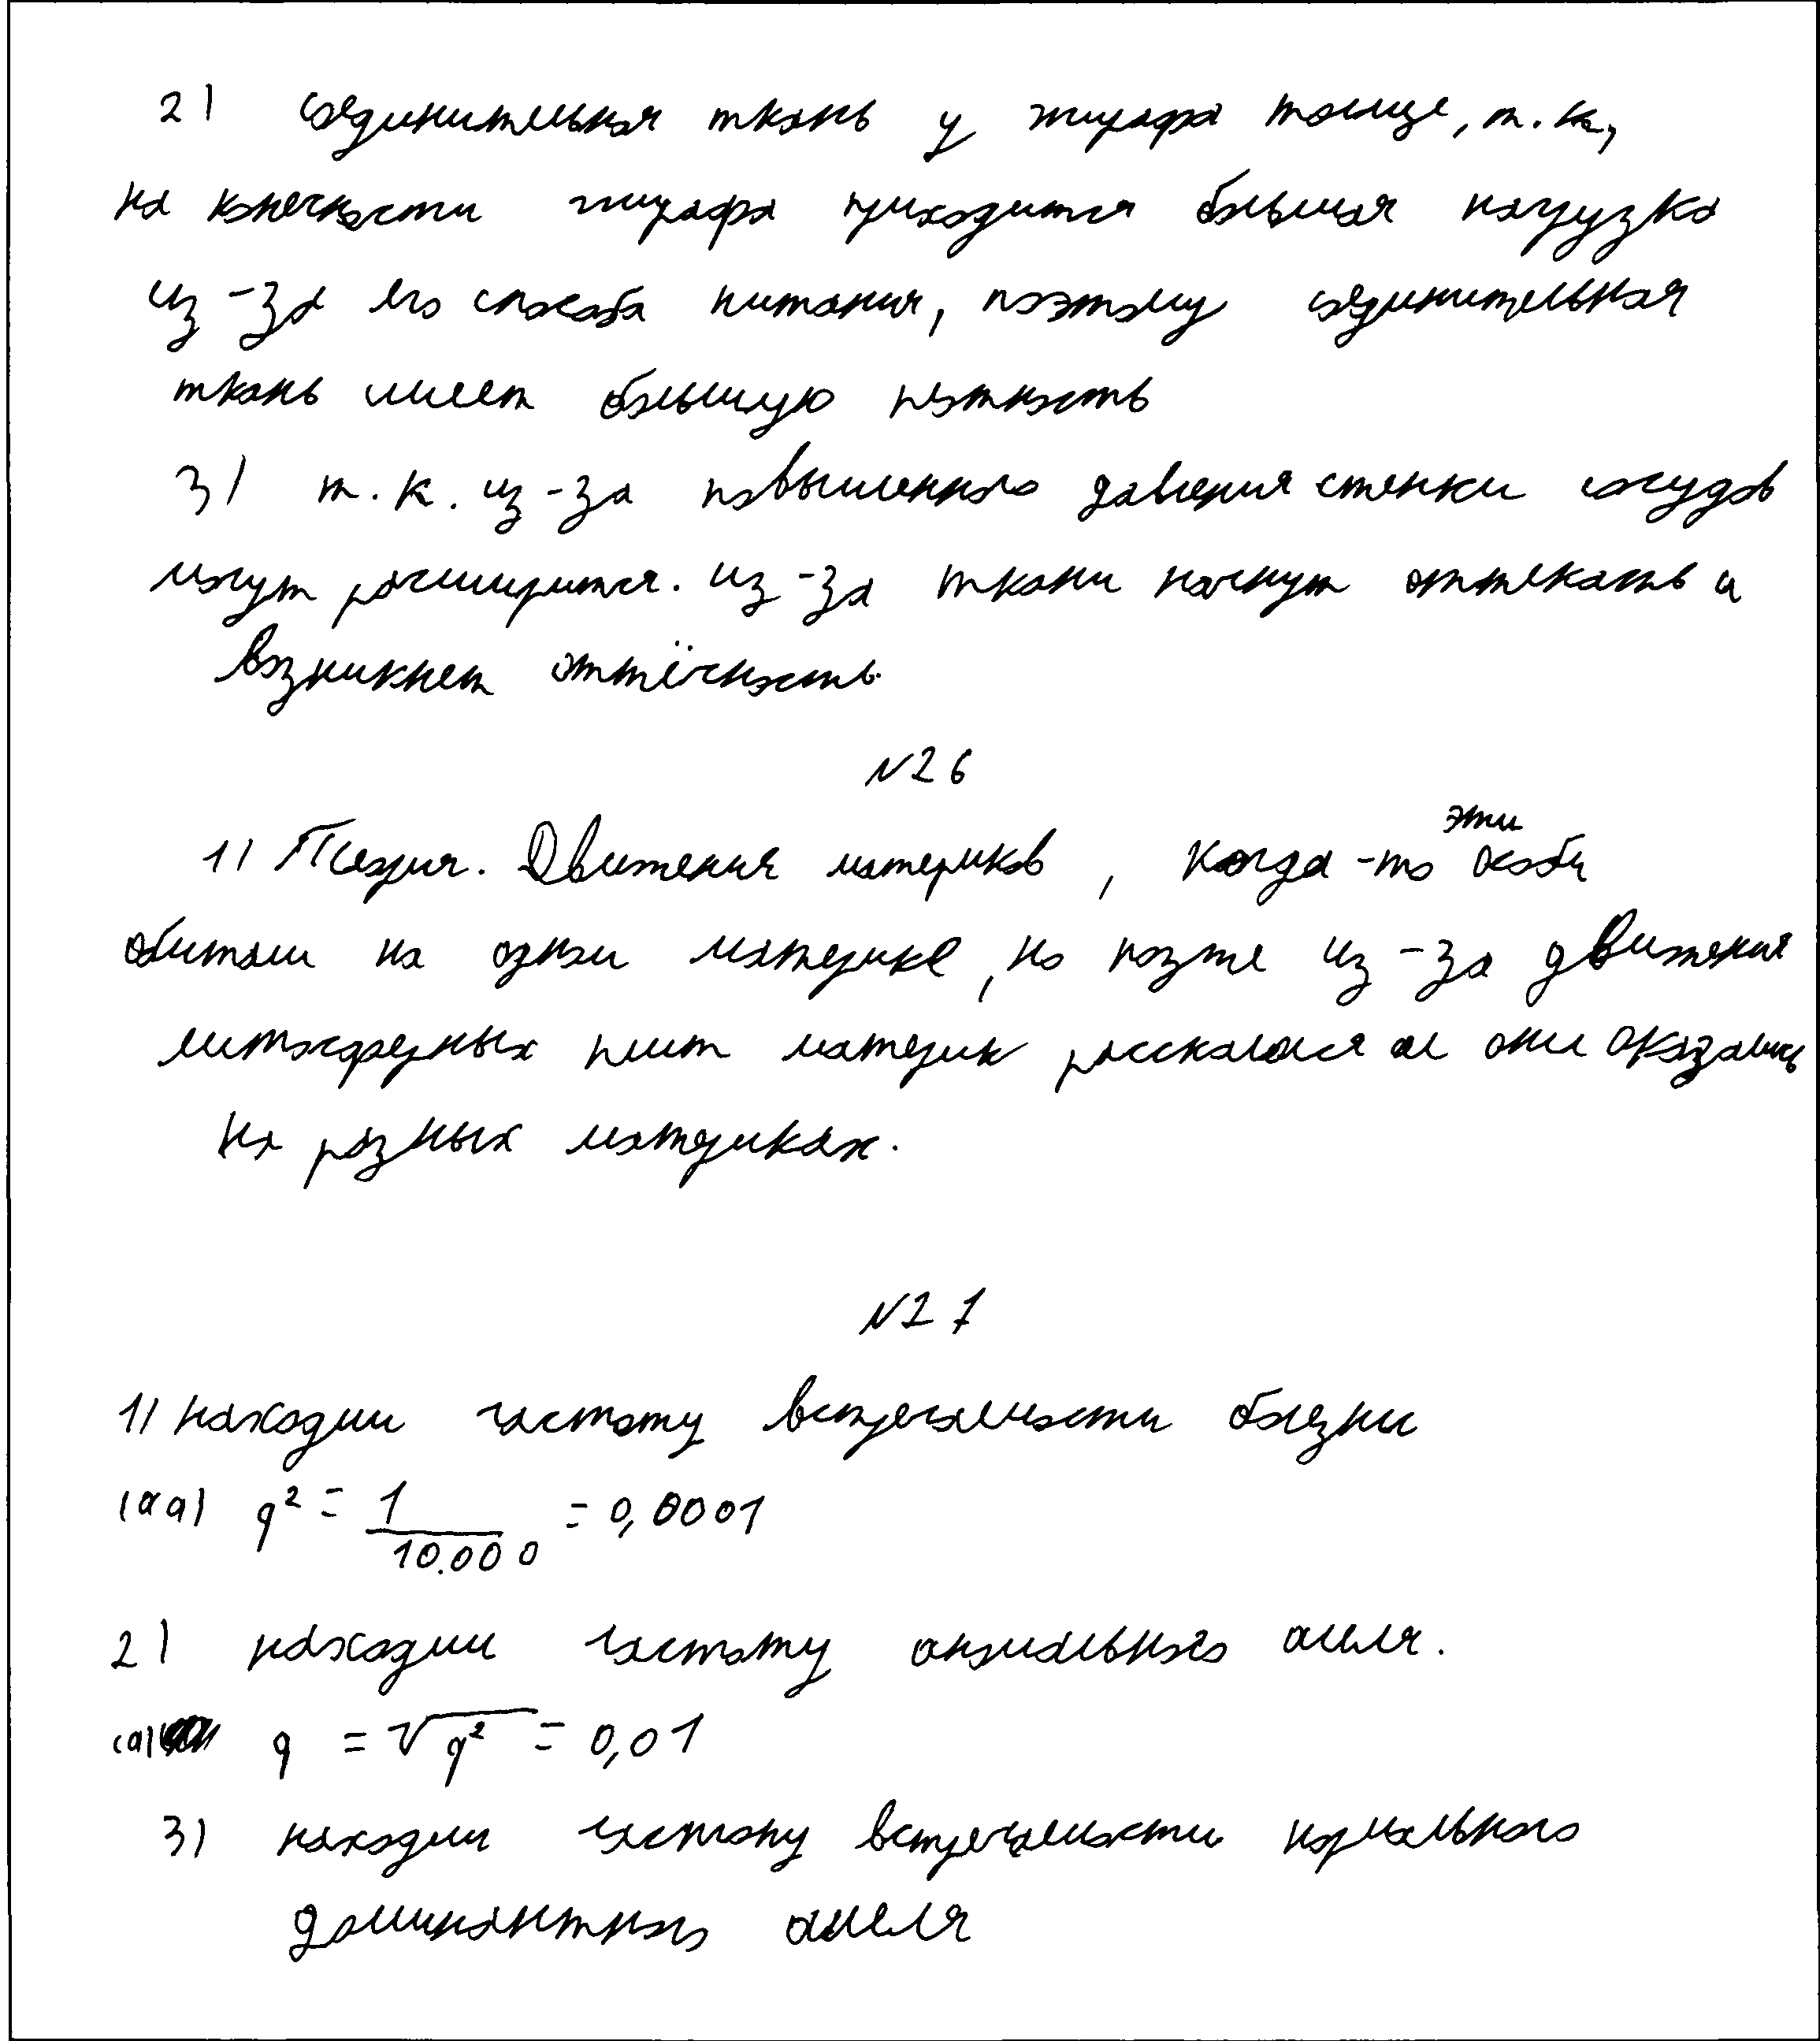 2) соединительная ткань у жирафа толще, т.к,
на конечности жирафа приходится большая нагрузка
из-за его способа питания, поэтому соединительная
ткань имеет большую плотность
3) т.к. из-за повышенного давления стенки сосудов
могут расширится. из-за ткани начнут оттекать и
возникнет оттёчность.
№26
1) Теория. Движения материков, когда-то эти особи
обитали на одном материке, но позже из-за движения
литосферных плит материк расскалолся и они оказались
на разных материках.
№27
1) находим частоту встречаемости болезни
(aa) q² = 1/10.000 = 0,0001
2) находим частоту аномального аллеля.
(a) q = √q² = 0,01
3) находим частоту встречаемости нормального
доминантного аллеля